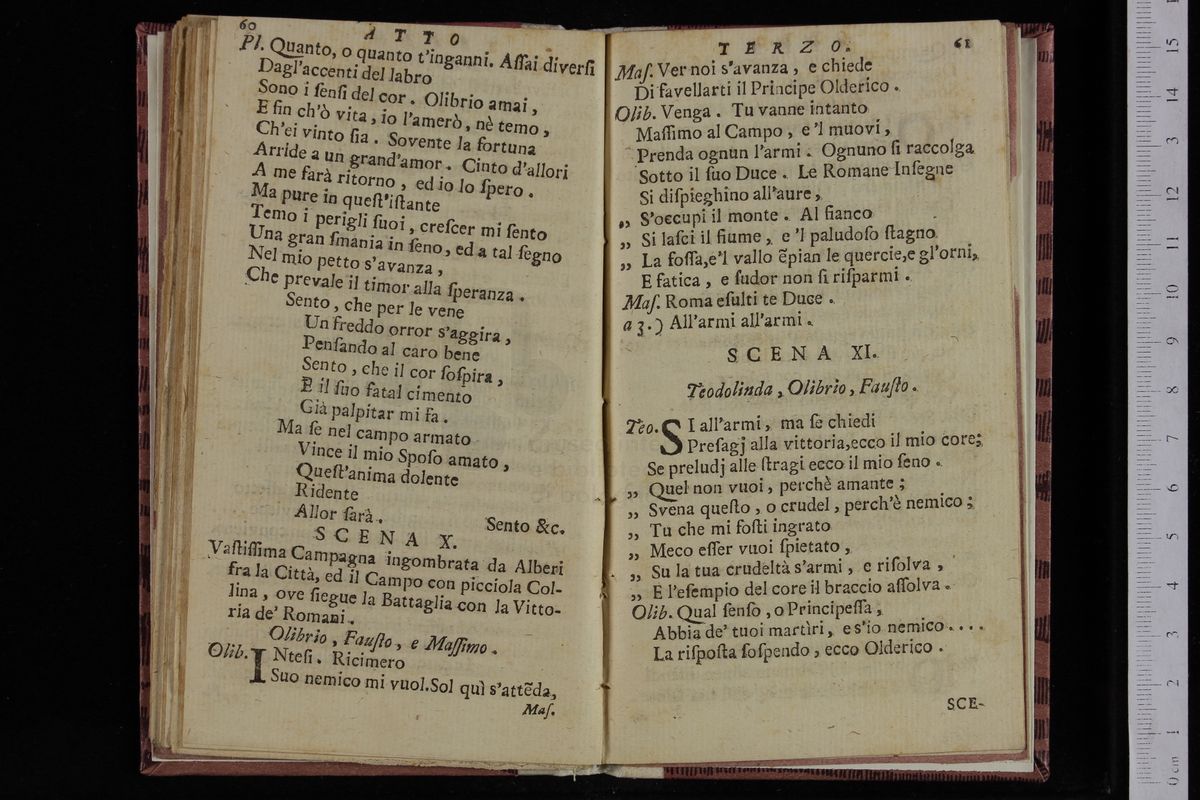 60
ATTO
Pl. Quanto, o quanto t'inganni. Aſſai diverſi
Dagl'accenti del labro
Sono i ſenſi del cor. Olibrio amai,
E fin ch'ò vita, io l'amerò, nè temo,
Ch'ei vinto ſia. Sovente la fortuna
Arride a un grand'amor. Cinto d'allori
A me farà ritorno, ed io lo ſpero.
Ma pure in queſt'iſtante
Temo i perigli ſuoi, creſcer mi ſento
Una gran ſmania in ſeno, ed a tal ſegno
Nel mio petto s'avanza,
Che prevale il timor alla ſperanza.
Sento, che per le vene
Un freddo orror s'aggira,
Penſando al caro bene
Sento, che il cor ſoſpira,
E il ſuo fatal cimento
Già palpitar mi fa.
Ma ſe nel campo armato
Vince il mio Spoſo amato,
Queſt'anima dolente
Ridente
Allor ſarà. Sento &c.
SCENA X.
Vaſtiſſima Campagna ingombrata da Alberi
fra la Città, ed il Campo con picciola Col-
lina, ove ſiegue la Battaglia con la Vitto-
ria de' Romani.
Olibrio, Fauſto, e Maſſimo.
Olib. INteſi. Ricimero
Suo nemico mi vuol.Sol quì s'attẽda,
Maſ.
TERZO. 61
Maſ. Ver noi s'avanza, e chiede
Di favellarti il Principe Olderico.
Olib. Venga. Tu vanne intanto
Maſſimo al Campo, e 'l muovi,
Prenda ognun l'armi. Ognuno ſi raccolga
Sotto il ſuo Duce. Le Romane Inſegne
Si diſpieghino all'aure,
„ S'occupi il monte. Al fianco
„ Si laſci il fiume, e 'l paludoſo ſtagno
„ La foſſa,e'l vallo ẽpian le quercie,e gl'orni,
E fatica, e ſudor non ſi riſparmi.
Maſ. Roma eſulti te Duce.
a 3.) All'armi all'armi.
SCENA XI.
Teodolinda, Olibrio, Fauſto.
Teo. SI all'armi, ma ſe chiedi
Preſagj alla vittoria,ecco il mio core;
Se preludj alle ſtragi ecco il mio ſeno.
„ Quel non vuoi, perchè amante;
„ Svena queſto, o crudel, perch'è nemico;
„ Tu che mi foſti ingrato
„ Meco eſſer vuoi ſpietato,
„ Su la tua crudeltà s'armi, e riſolva,
„ E l'eſempio del core il braccio aſſolva.
Olib. Qual ſenſo, o Principeſſa,
Abbia de' tuoi martìri, e s'io nemico....
La riſpoſta ſoſpendo, ecco Olderico.
SCE-
0cm 1 2 3 4 5 6 7 8 9 10 11 12 3 14 15